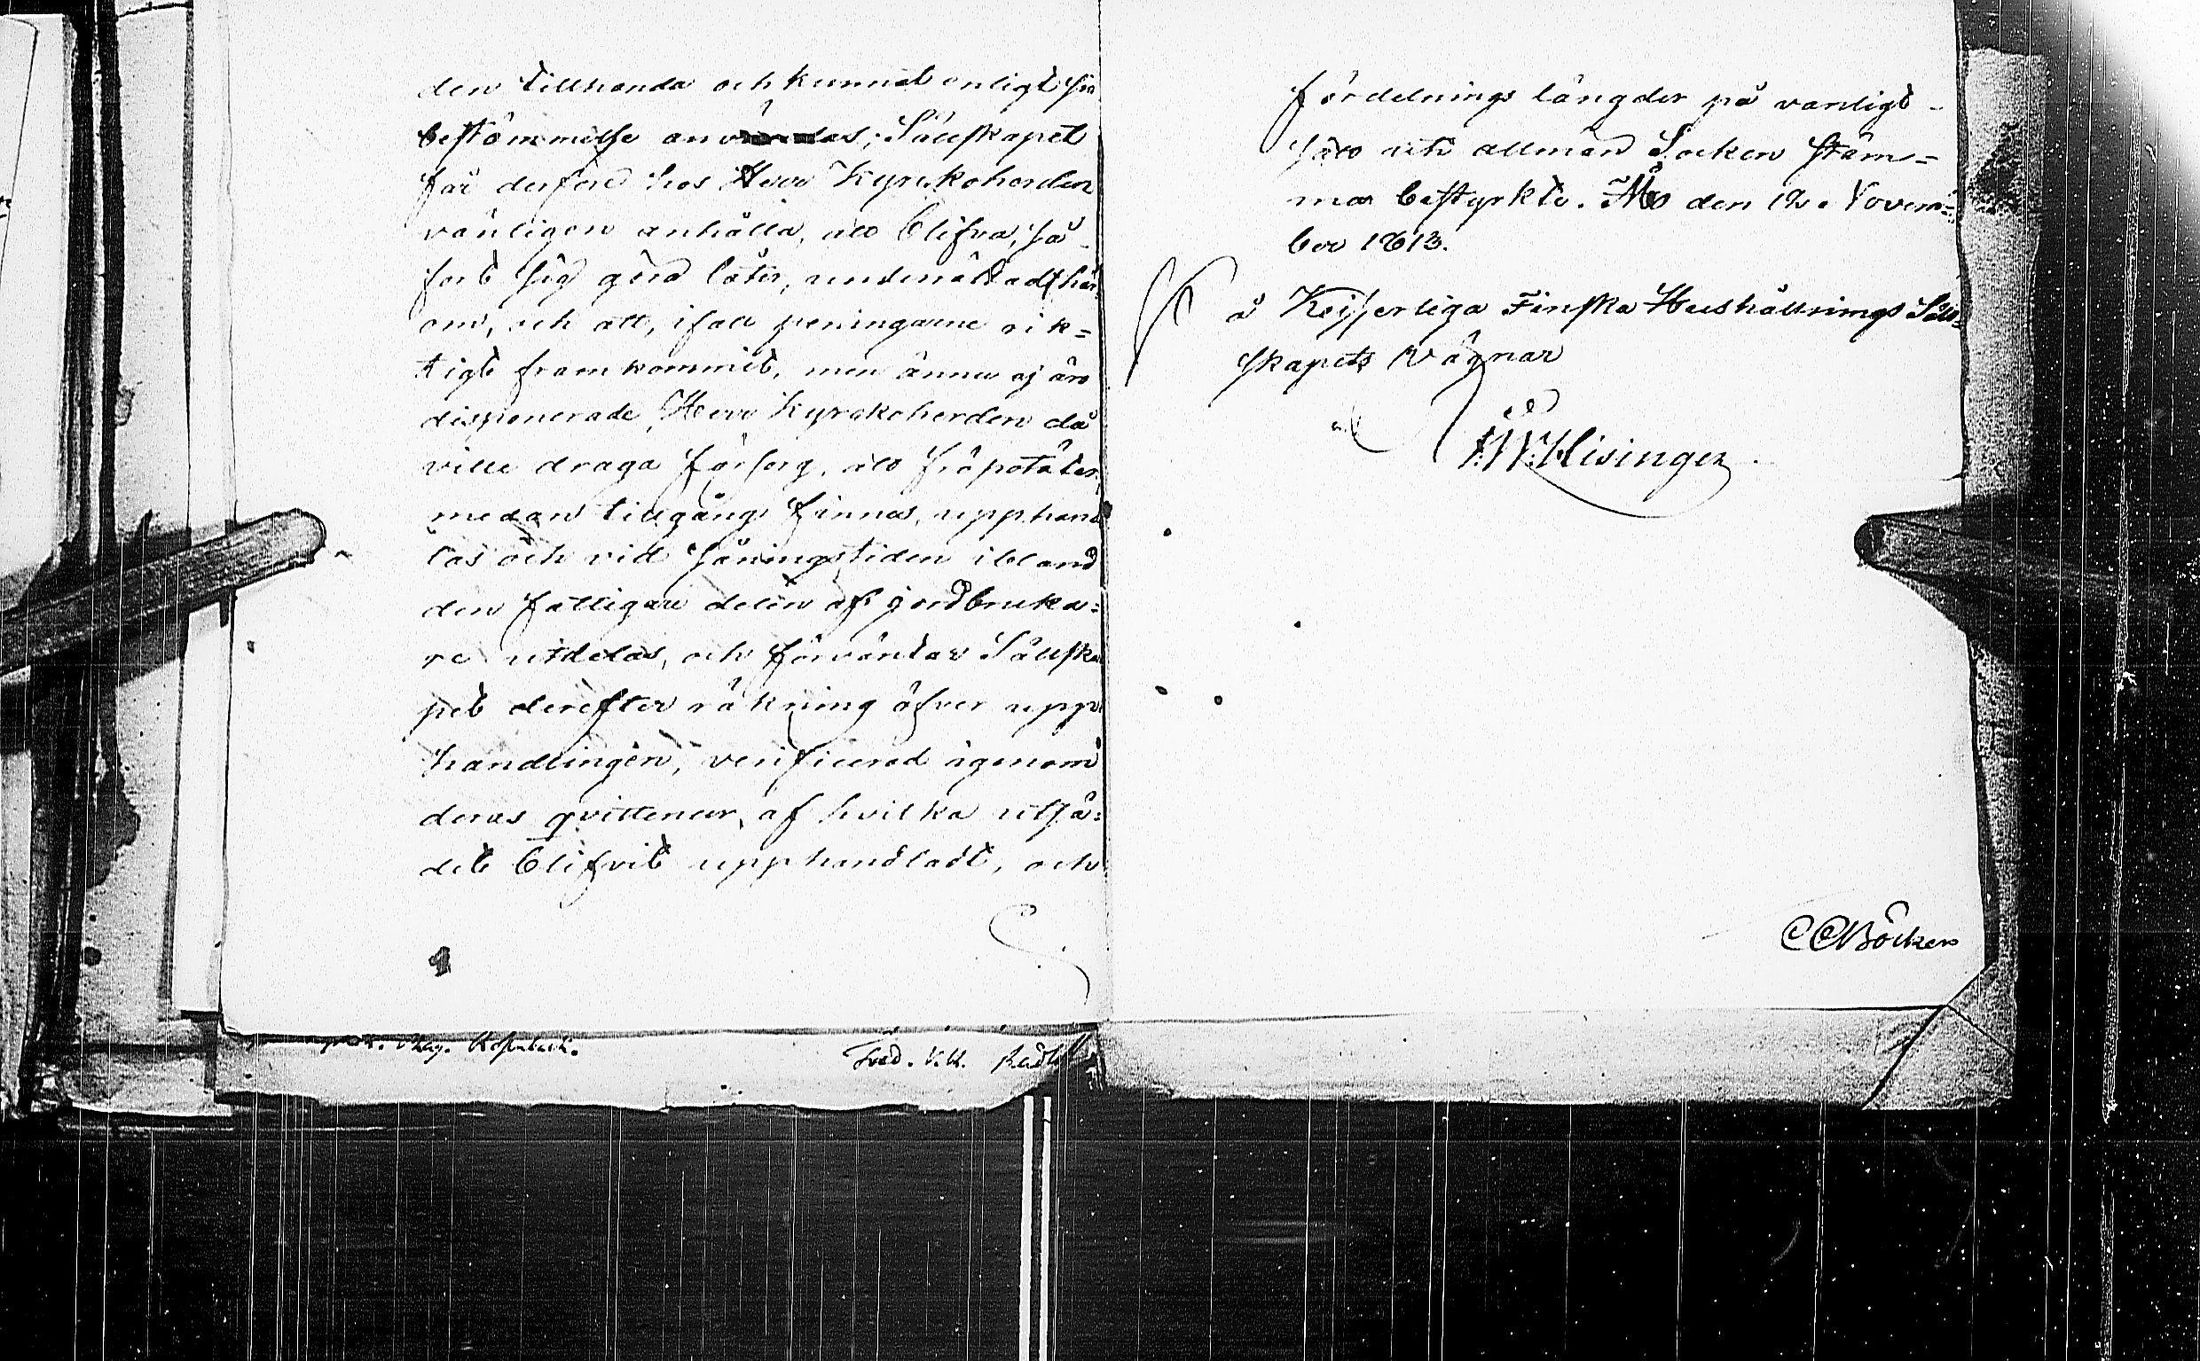 den tillhanda och kunnat enligt sin
bestämmelse användas; Sällskapet
får derföre hos Herr Kyrkoherden
vänligen anhålla, att blifva, så
fort sig göra låter, underrättadt här
om, och att, ifall peningarne rik=
tigt framkommit, men ännu ej äro
disponerade, Herr Kyrkoherden då
ville draga försorg, att fröpotäter,
medan tillgång finnes, upphand
las och vid såningstiden ibland
den fattigare delen af jordbruka=
re utdelas, och förväntar Sällska
pet derefter räkning öfver upp
handlingen, verificerad igenom
deras qvittencer, af hvilka utsä=
det blifvit upphandladt, och
Fred. V.U.
fördelnings längder på vanligt
sätt uti allmän Socken stäm=
ma bestyrkte. Åbo den 12 Novem=
ber 1813.
å Kejserliga Finska Hushållnings Säll=
skapets vägnar
F.W. Hisinger.
CCBöcker